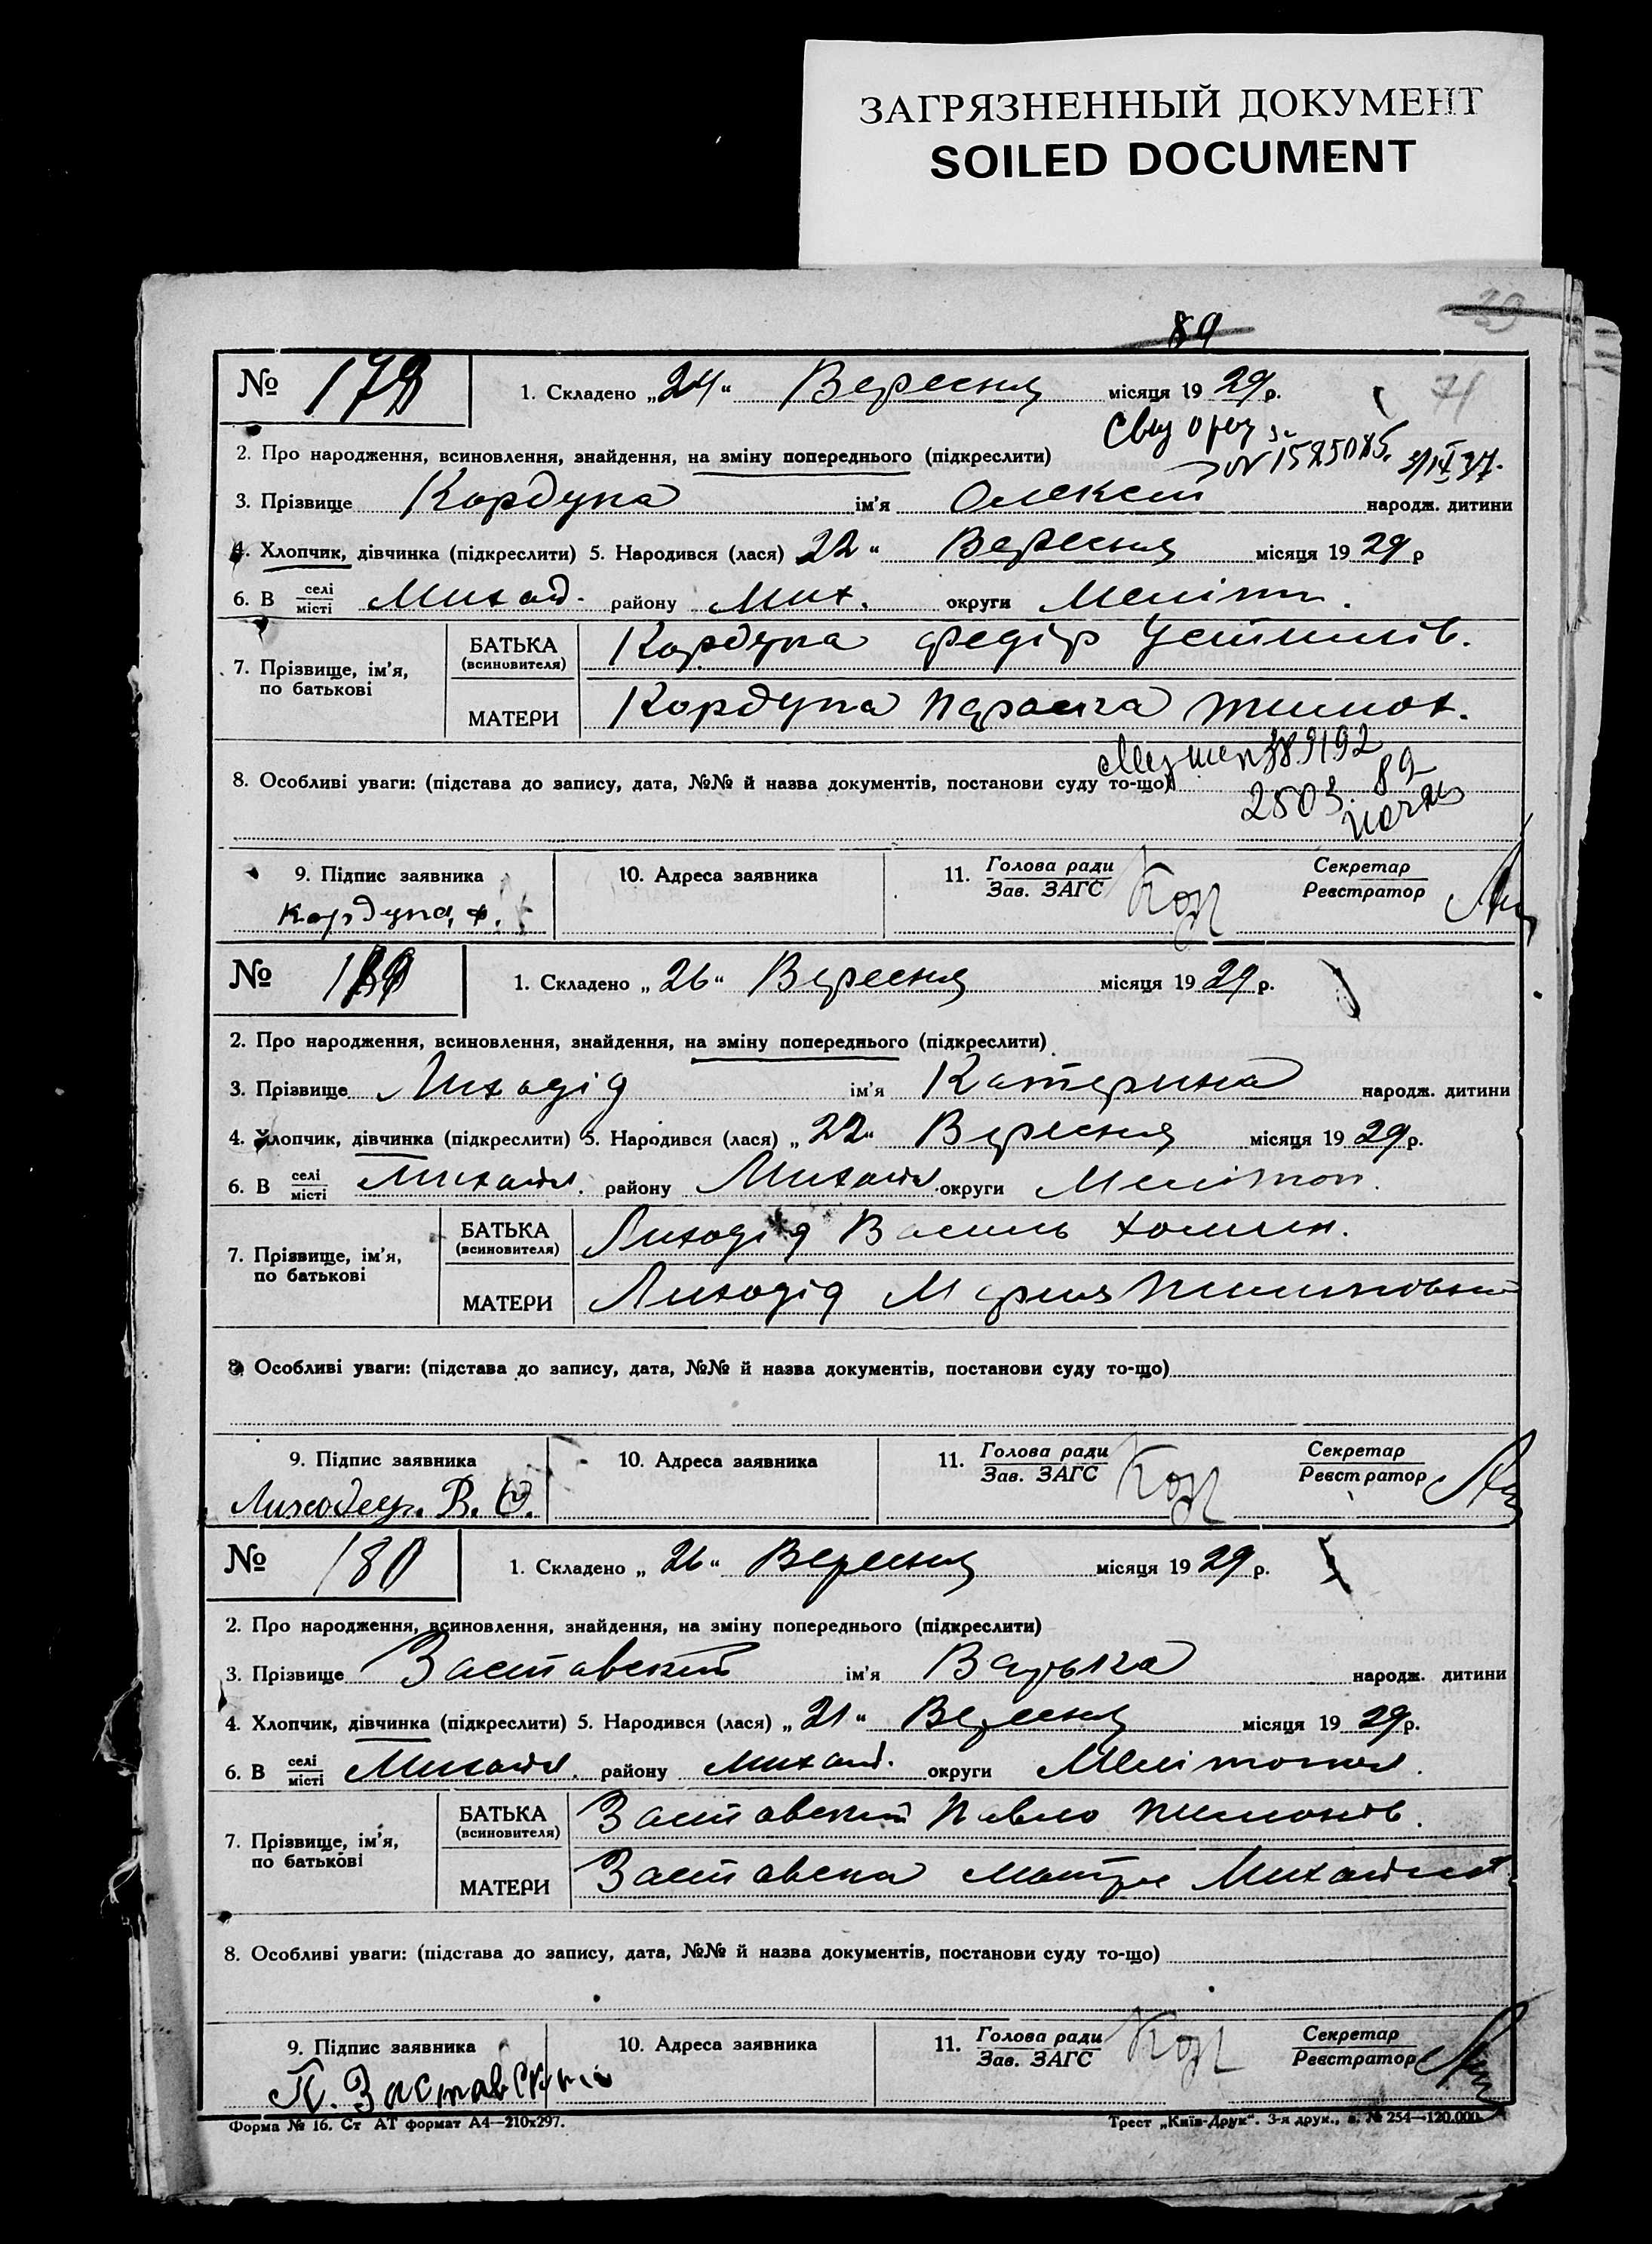 ЗАГРЯЗНЕННЫЙ ДОКУМЕНТ
SOILED DOCUMENT
89
71
№ 178 1. Складено „24“ Вересня місяця 1929 р.
2. Про народження, всиновлення, знайдення, на зміну попереднього (підкреслити)
3. Прізвище Кордупа ім'я Олексій народж. дитини
4. Хлопчик, дівчинка (підкреслити) 5. Народився (лася) 22“ Вересня місяця 1929 р
6. В селі/місті Михайл. району Мих. округи Меліт.
7. Прізвище, ім'я, по батькові
БАТЬКА (всиновителя) Кордупа Федір Устимів.
МАТЕРИ Кордупа Параска Тимох.
8. Особливі уваги: (підстава до запису, дата, №№ й назва документів, постанови суду то-що)
9. Підпис заявника 10. Адреса заявника 11. Голова ради/Зав. ЗАГС Секретар/Реєстратор
Кордупа, Ф.
№ 1. Складено „26“ Вересня місяця 1929 р.
2. Про народження, всиновлення, знайдення, на зміну попереднього (підкреслити)
3. Прізвище Лиходід ім'я Катерина народж. дитини
4. Хлопчик, дівчинка (підкреслити) 5. Народився (лася) „22“ Вересня місяця 1929 р.
6. В селі/місті Михайл. району Михайл. округи Мелітоп.
7. Прізвище, ім'я, по батькові
БАТЬКА (всиновителя) Лиходід Василь
МАТЕРИ Лиходід Мария
8. Особливі уваги: (підстава до запису, дата, №№ й назва документів, постанови суду то-що)
9. Підпис заявника 10. Адреса заявника 11. Голова ради/Зав. ЗАГС Секретар/Реєстратор
№ 180 1. Складено „26“ Вересня місяця 1929 р.
2. Про народження, всиновлення, знайдення, на зміну попереднього (підкреслити)
3. Прізвище Заставский ім'я Варька народж. дитини
4. Хлопчик, дівчинка (підкреслити) 5. Народився (лася) „21“ Вересня місяця 1929 р.
6. В селі/місті Михайл. району Михайл. округи Мелітопол.
7. Прізвище, ім'я, по батькові
БАТЬКА (всиновителя) Заставский Павло
МАТЕРИ Заставска Мотря Михайл
8. Особливі уваги: (підстава до запису, дата, №№ й назва документів, постанови суду то-що)
9. Підпис заявника 10. Адреса заявника 11. Голова ради/Зав. ЗАГС Секретар/Реєстратор
П. Заставский
Форма № 16. Ст АТ формат А4—210х297. Трест „Київ-Друк“. 3-я друк., з. № 254—120.000.